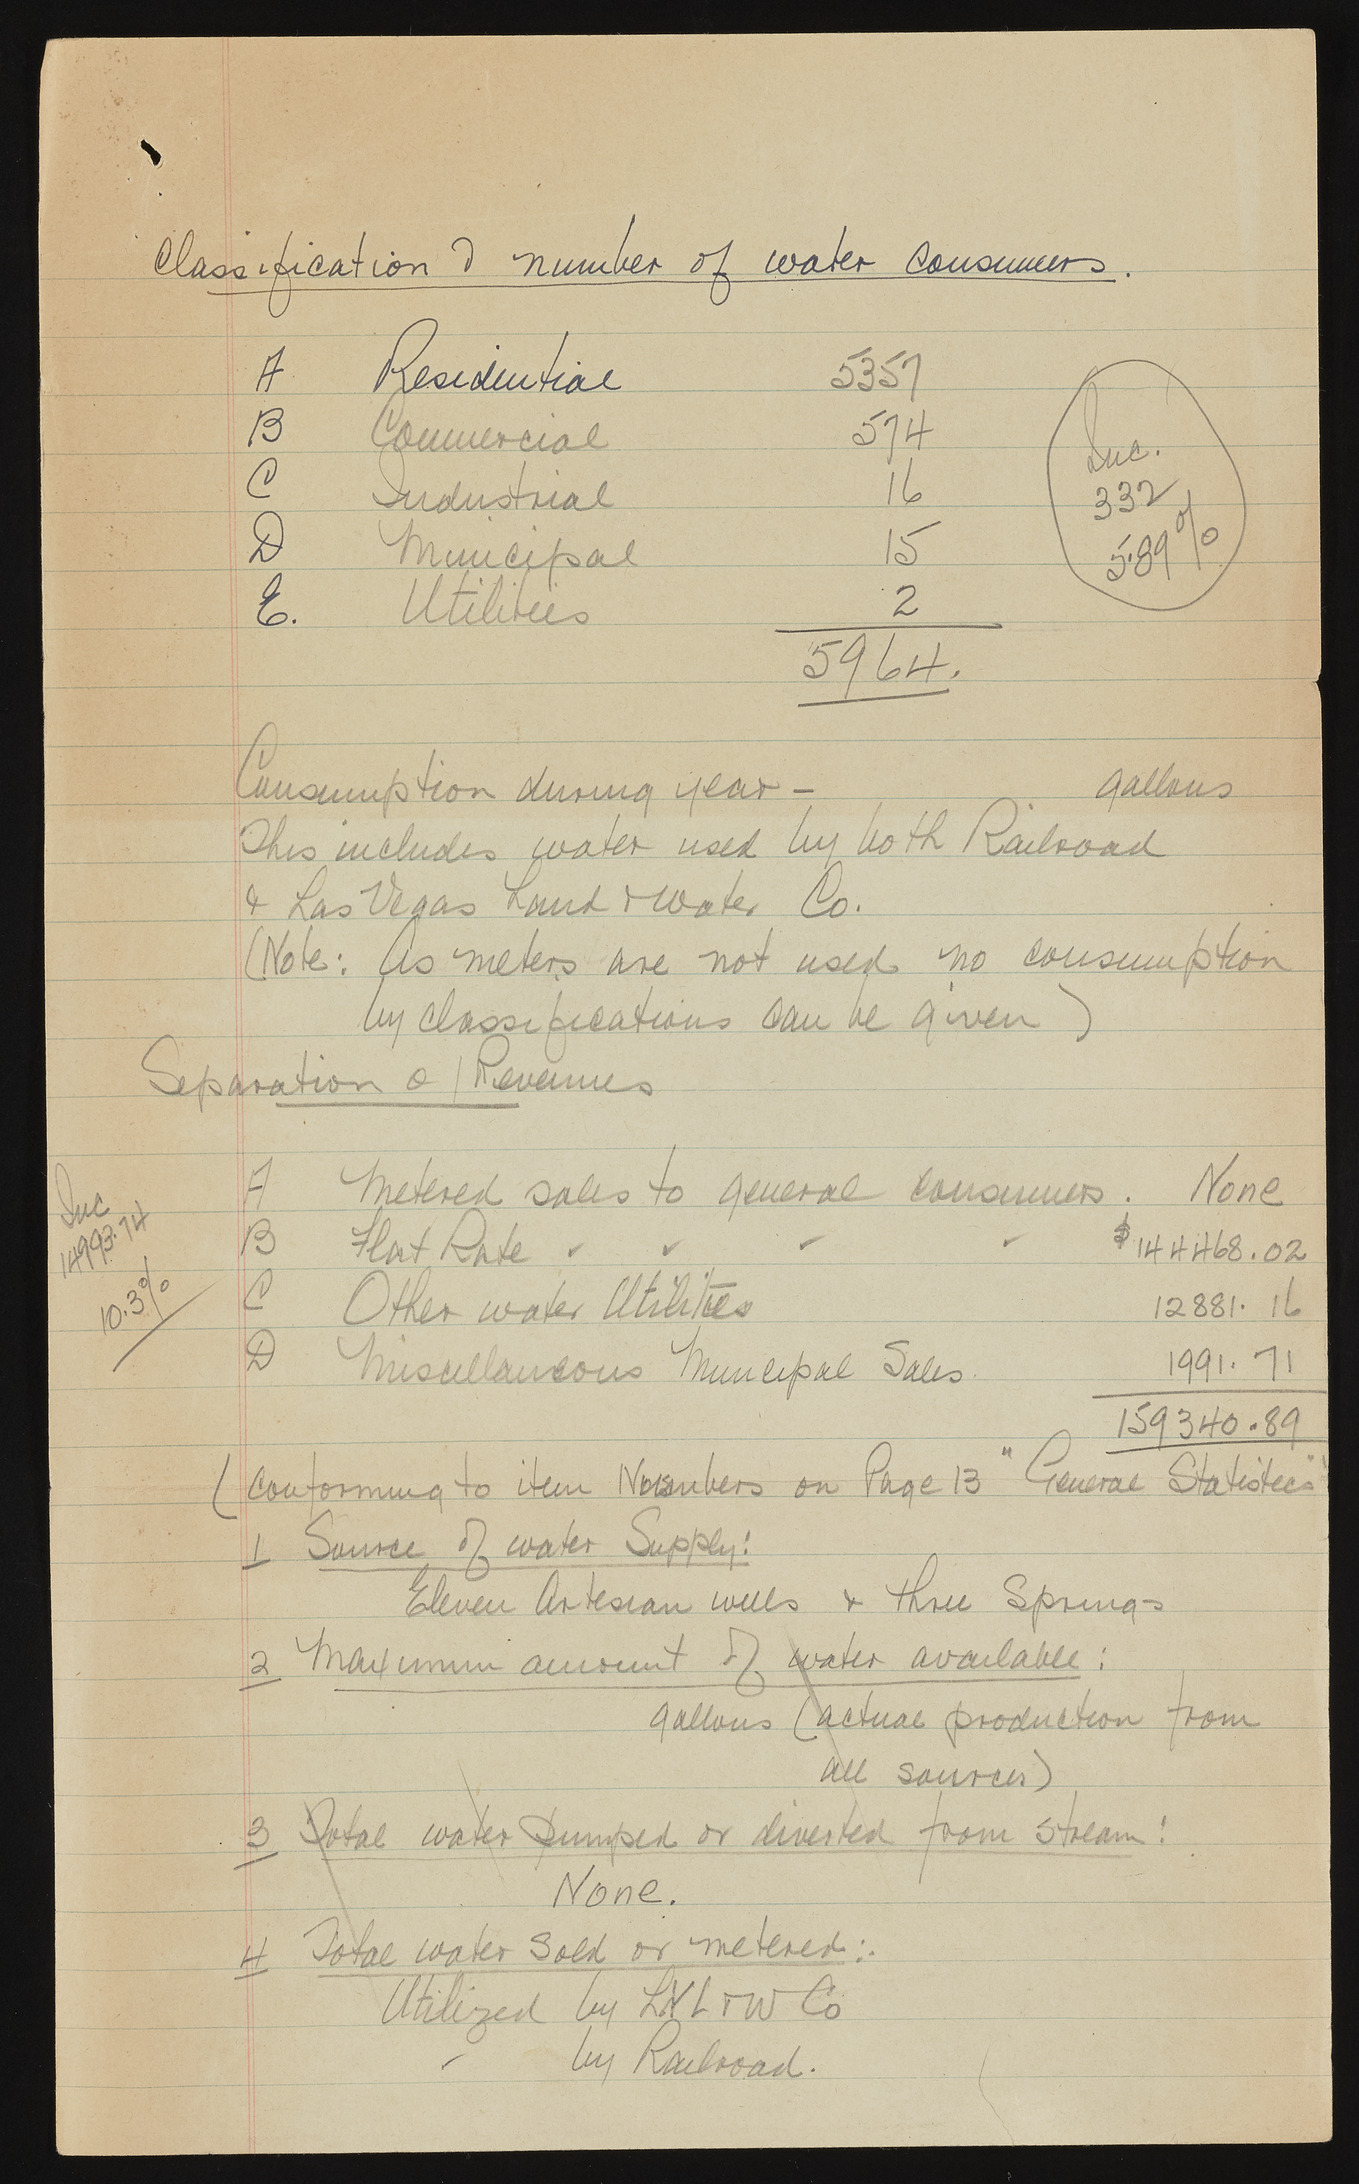 Classification & number of water consumers.
A Residential 5357
B Commercial 574
C Industrial 16
D Municipal 15
E. Utilities 2
5964.
Inc.
332
5.89%
Consumption during year - gallons
This includes water used by both Railroad
& Las Vegas Land & Water Co.
(Note: As meters are not used no consumption
by classifications can be given)
Separation of Revenues
A Metered sales to general consumers. None
B Flat Rate " " " " $144468.02
C Other water Utilities 12881.16
D Miscellaneous Muncipal Sales 1991.71
159340.89
Inc
14993.74
10.3%
(Conforming to item Numbers on Page 13 "General Statistics"
1 Source of water Supply:
Eleven Artesian wells & three Springs
2 Maximum amount of water available:
gallons (actual production from
all sources)
3 Total water Pumped or diverted from stream:
None.
4 Total water Sold or metered:.
Utilized by LVL & W Co
" by Railroad.